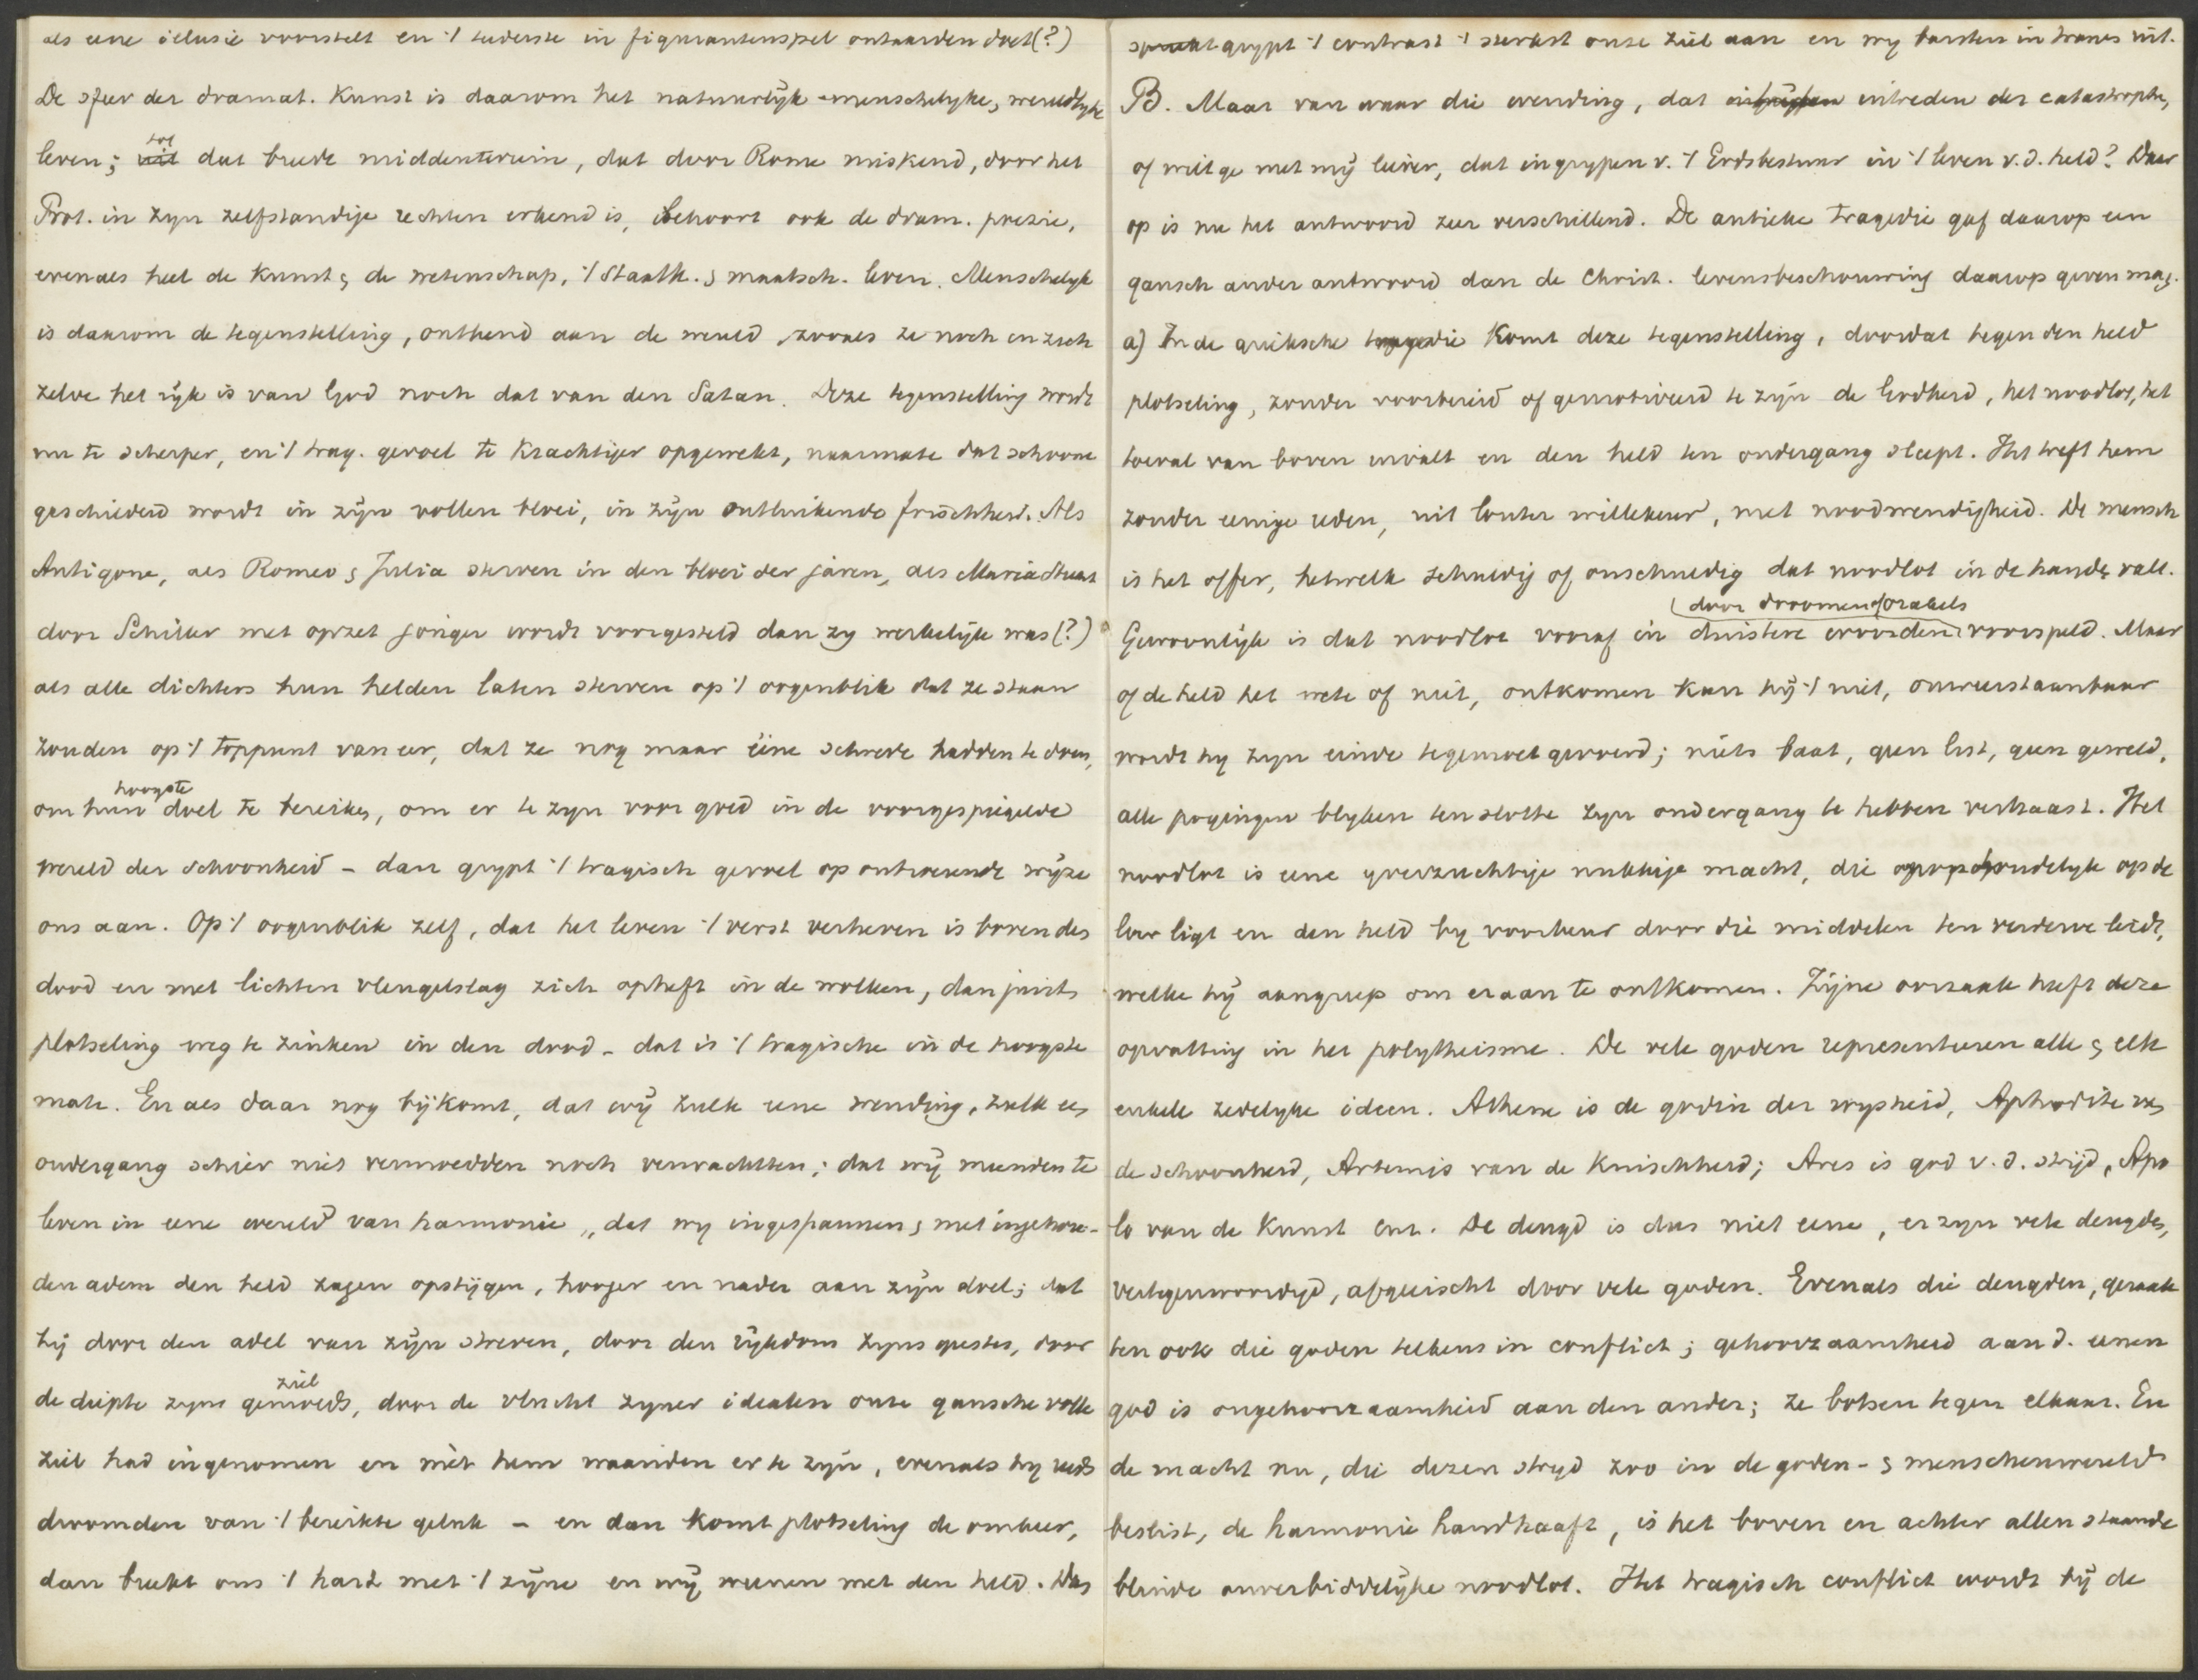 als eene illusie voorstelt en 't tederste in figurantenspel ontaarden doet(?)
De sfeer der dramat. Kunst is daarom het natuurlijk-menschelyke, wereldlyke
leven; tot dat breede middenterrein, dat door Rome miskend, door het
Prot. in zyn zelfstandige rechten erkend is, behoort ook de dram. poezie,
evenals heel de Kunst & de wetenschap, 't Staatk. & maatsch. leven. Menschelyk
is daarom de tegenstelling, ontleend aan de wereld, zooals ze noch in zich
zelve het rijk is van God noch dat van den Satan. Deze tegenstelling wordt
nu te scherper, en 't trag. gevoel te Krachtiger opgewekt, naarmate dat schoone
geschilderd wordt in zijn vollen bloei, in zijn ontluikende frischheid. Als
Antigone, als Romeo & Julia sterven in den bloei der jaren, als Maria Stuart
door Schiller met opzet jonger wordt voorgesteld dan zy werkelijk was(?)
als alle dichters hun helden laten sterven op 't oogenblik dat ze staan
zouden op 't toppunt van eer, dat ze nog maar ééne schrede hadden te doen,
om hun hoogste doel te bereiken, om er te zyn voor goed in de voorgespiegelde
wereld der schoonheid - dan grypt 't tragisch gevoel op ontroerende wijze
ons aan. Op 't oogenblik zelf, dat het leven 't verst verheven is boven den
dood en met lichten vleugelslag zich opheft in de wolken, dan juist
plotseling weg te zinken in den dood - dat is 't tragische in de hoogste
mate. En als daar nog bijkomt, dat wij zulk eene wending, zulk een
ondergang schier niet vermoedden noch verwachtten; dat wij meenden te
leven in eene wereld van harmonie, dat wy ingespannen & met ingehou-
den adem den held zagen opstijgen, hooger en nader aan zijn doel; dat
hij door den adel van zijn streven, door den rijkdom zyns geestes, door
de diepte zyns gemoeds, ziel door de vlucht zyner idealen onze gansche volle
ziel had ingenomen en mèt hem waanden er te zijn, evenals hy reeds
droomden van 't bereikte geluk - en dan komt plotseling de omkeer,
dan breekt ons 't hart met 't zijne en wij weenen met den held. Dus
grypt 't contrast 't sterkst onze ziel aan en wy barsten in tranen uit.
B. Maar van waar die wending, dat intreden der catastrophe,
of wilt ge met mij liever, dat ingrypen v. 't Godsbestuur in 't leven v.d. held? Daar
op is nu het antwoord zeer verschillend. De antieke tragedie gaf daarop een
gansch ander antwoord dan de Christ. levensbeschouwing daarop geven mag.
a) In de grieksche tragedie Komt deze tegenstelling, doordat tegen den held
plotseling, zonder voorbereid of gemotiveerd te zijn de Godheid, het noodlot, het
toeval van boven invalt en den held ten ondergang sleept. Het treft hem
zonder eenige reden, uit louter willekeur, met noodwendigheid. De mensch
is het offer, hetwelk schuldig of onschuldig dat noodlot in de handen valt.
door droomen & orakels
Gewoonlijk is dat noodlot vooraf in duistere woorden voorspeld. Maar
of de held het wete of niet, ontkomen kan hij 't niet, onweerstaanbaar
wordt hy zyn einde tegemoet gevoerd; niets baat, geen list, geen geweld,
alle pogingen blyken ten slotte zyn ondergang te hebben verhaast. Het
noodlot is eene yverzuchtige nukkige macht, die ophoudelyk op de
loer ligt en den held by voorkeur door die middelen ten verderve leidt,
welke hij aangreep om eraan te ontkomen. Zijne oorzaak heeft deze
opvatting in het polytheisme. De vele goden representeeren alle & elk
enkele zedelyke ideen. Athene is de godin der wysheid, Aphrodite van
de schoonheid, Artemis van de Kuischheid; Ares is god v.d. strijd, Apo
lo van de Kunst enz. De deugd is dus niet eene, er zyn vele deugden,
vertegenwoordigd, afgeëischt door vele goden. Evenals die deugden, geraak
ten ook die goden telkens in conflict; gehoorzaamheid aan d. eenen
god is ongehoorzaamheid aan den ander; ze botsen tegen elkaar. En
de macht nu, die dezen stryd zoo in de goden- & menschenwereld
beslist, de harmonie handhaaft, is het boven en achter allen staande
blinde onverbiddelijke noodlot. Het tragisch conflict wordt bij de